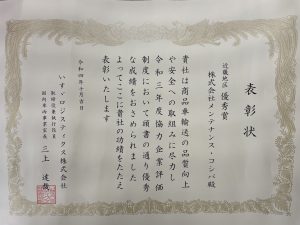 表彰状
近畿地区 優秀賞
株式会社メンテナンス・コシバ殿
貴社は商品車輸送の品質向上
や安全への取組みに尽力し
令和三年度協力企業評価
制度において頭書の通り優秀
な成績をおさめられました
よってここに貴社の功績をたたえ
表彰いたします
令和四年十月吉日
いすゞロジスティクス株式会社
取締役常務執行役員
三上 達哉